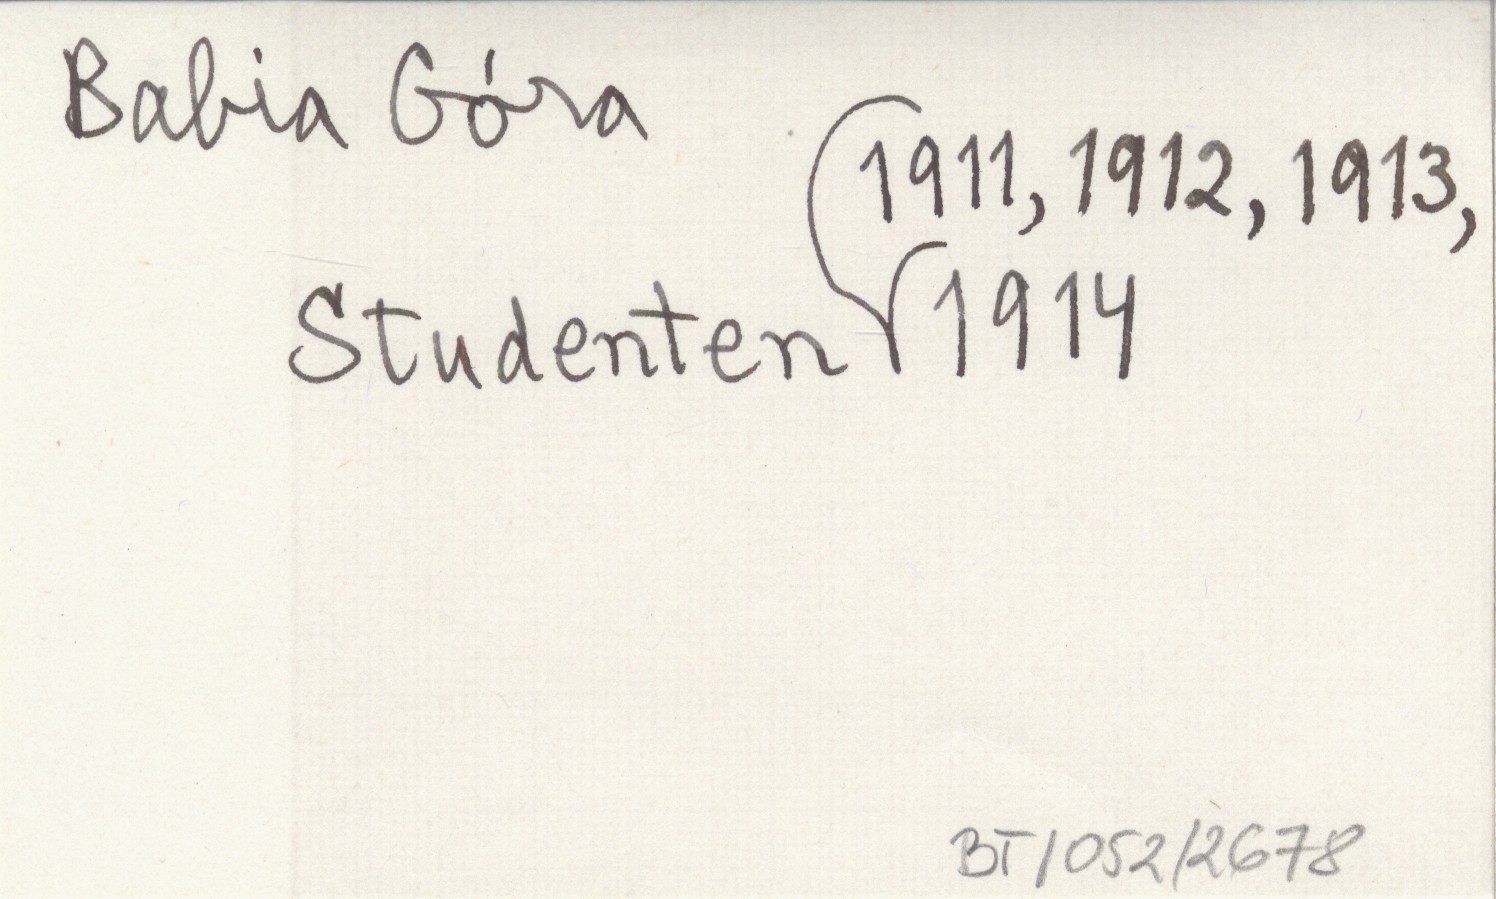 Babia Góra
1911, 1912, 1913,
Studenten 1914
BT/052/2678